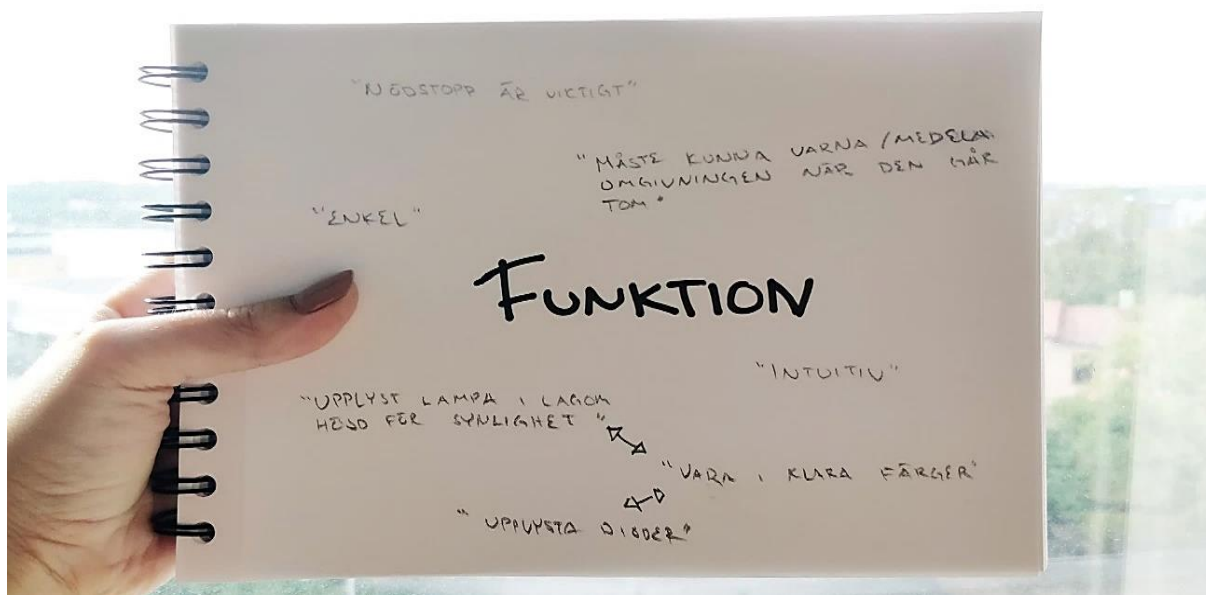 "NÖDSTOPP ÄR VIKTIGT"
"MÅSTE KUNNA VARNA / MEDELA
OMGIVNINGEN NÄR DEN GÅR
TOM"
"ENKEL"
FUNKTION
"INTUITIV"
"UPPLYST LAMPA I LAGOM
HÖJD FÖR SYNLIGHET"
"VARA I KLARA FÄRGER"
"UPPLYSTA DIODER"